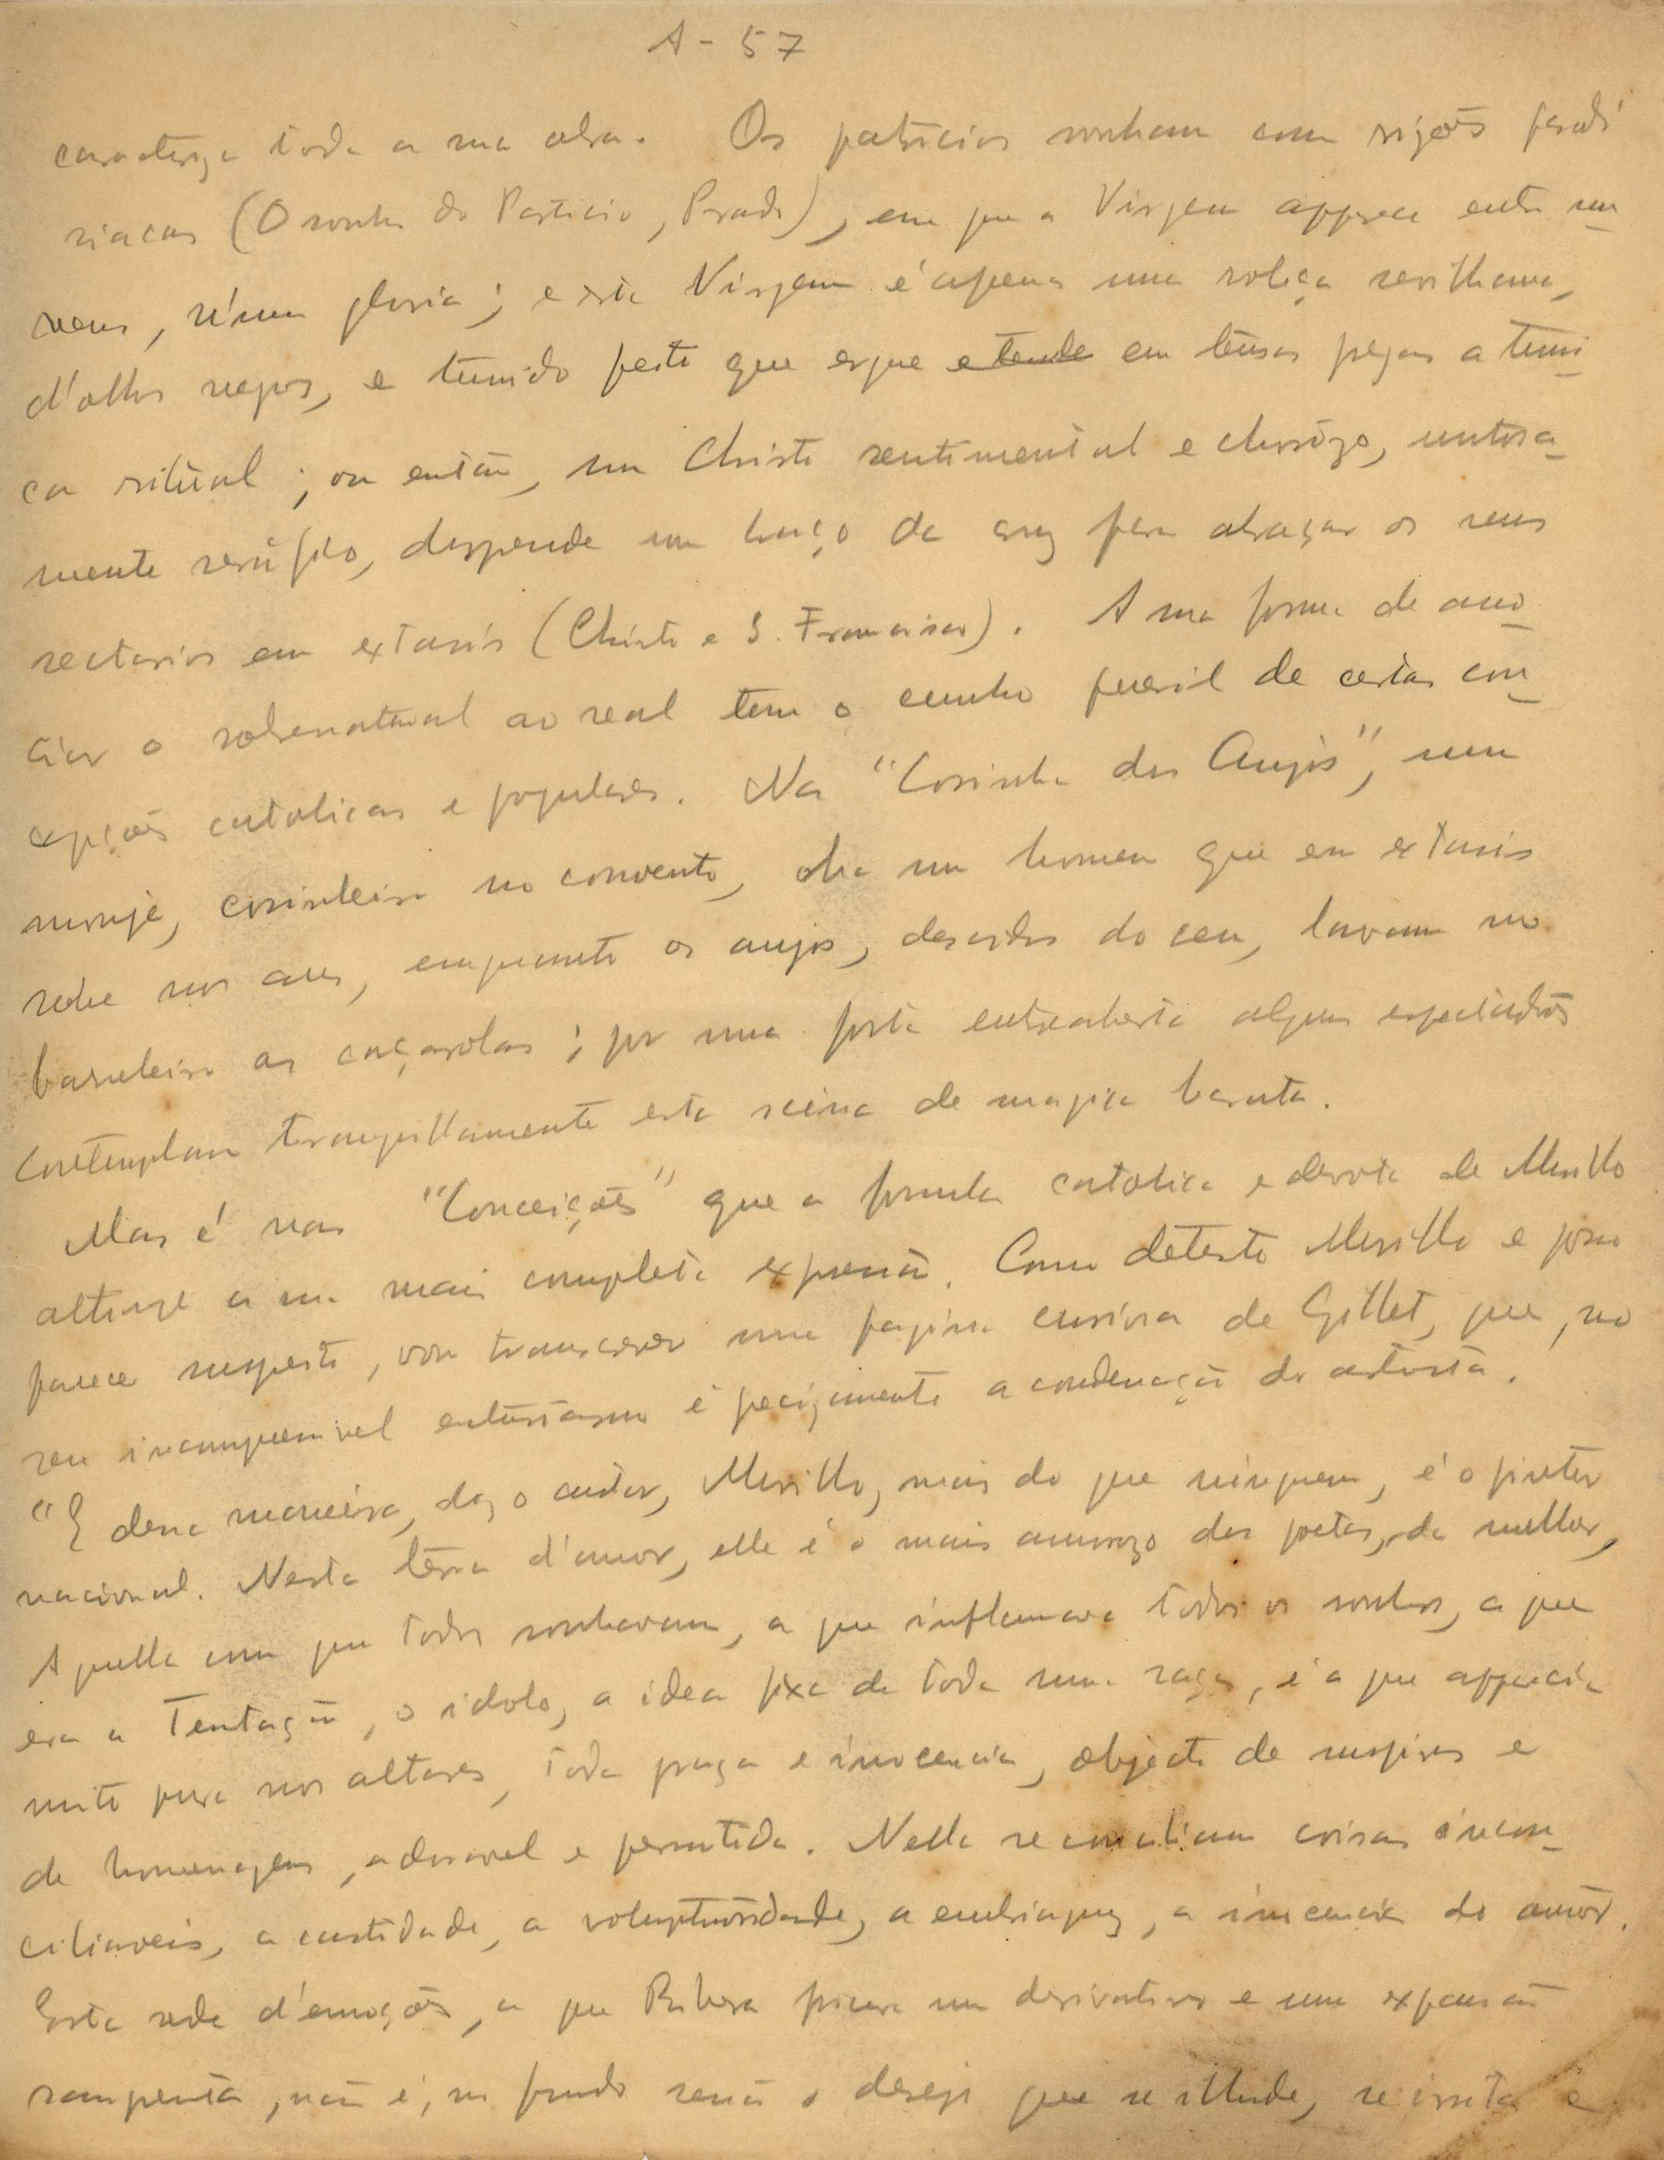 A - 57
caracteriza toda a sua obra. Os patricios sonham com visões paradi
siacas (O sonho do Patricio, Prado), em que a Virgem apparece entre nu-
vens, n'uma gloria; e esta Virgem é apenas uma roliça sevilhana,
d'olhos negros, e tumido peito que ergue e tende em tensas pregas a tuni-
ca ritual; ou então, um Christo sentimental e chorôzo, untuosa-
mente seráfico, desprende um braço da cruz para abraçar os seus
sectarios em extasis (Christo e S. Francisco). A sua forma de asso-
ciar o sobrenatural ao real tem o cunho pueril de certas con-
cepções catolicas e populares. Na "Cosinha dos Anjos", um
monje, cosinheiro no convento, olha um homem que em extasis
sobe nos ares, emquanto os anjos, descidos do ceu, lavam no
banheiro as caçarolas; por uma porta entreaberta alguns espectadôres
contemplam tranquillamente esta scena de magica barata.
Mas é nas "Conceições" que a formula catolica e devota de Murillo
attinge a sua mais completa expressão. Como detesto Murillo e posso
parecer suspeito, vou transcrever uma pagina curiosa de Gillet, que, no
seu incompreensivel entusiasmo é precizamente a condenação do artista.
"E dessa maneira, diz o autor, Murillo, mais do que ninguem, é o pintor
nacional. Nesta terra d'amor, elle é o mais amorozo dos poetas, da mulher,
Aquella com que todos sonhavam, a que inflamava todos os sonhos, a que
era a Tentação, o idolo, a idea fixa de toda uma raça, é a que apparecia
muito pura nos altares, toda graça e inocencia, objecto de suspiros e
de homenagens, adoravel e permitida. Nella se conciliam coisas incon-
ciliaveis, a castidade, a voluptuosidade, a embriaguez, a inocencia do amôr.
Esta sede d'emoções, a que Ribera procura um derivativo e uma expansão
sangrenta, não é, no fundo senão o desejo que se illude, se irrita e